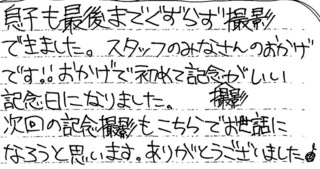 息子も最後までぐずらず撮影
できました。スタッフのみなさんのおかげ
です!!おかげで初めて記念がいい
記念日になりました。 撮影
次回の記念撮影もこちらでお世話に
なろうと思います。ありがとうございました